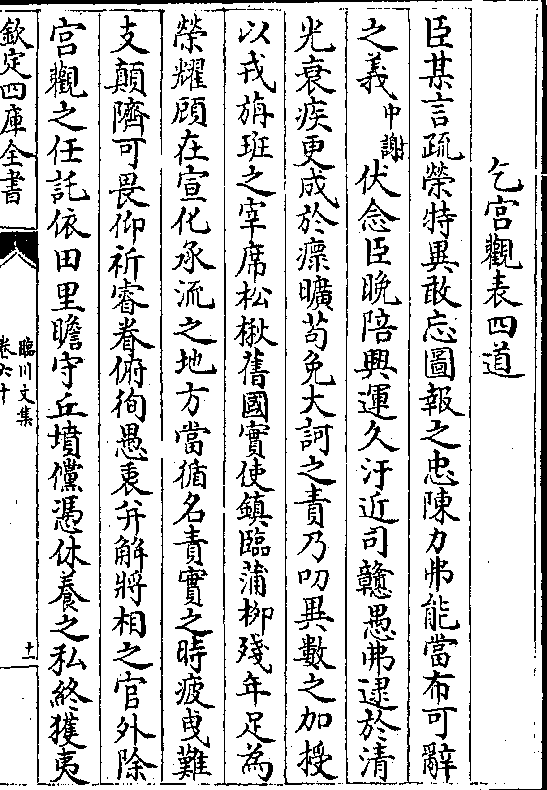 乞宮觀表四道
臣某言疏榮特異敢忘圖報之忠陳力弗能當布可辭
之義中謝伏念臣晚陪興運久汙近司戇愚弗逮於清
光衰疾更成於瘝曠苟免大訶之責乃叨異數之加授
以戎旃班之宰席松楸舊國實使鎮臨蒲柳殘年足為
榮耀顧在宣化承流之地方當循名責實之時疲曳難
支顛隮可畏仰祈睿眷俯徇愚衷弁解將相之官外除
宮觀之任託依田里瞻守丘墳儻憑休養之私終獲夷
欽定四庫全書
臨川文集
卷六十
十一